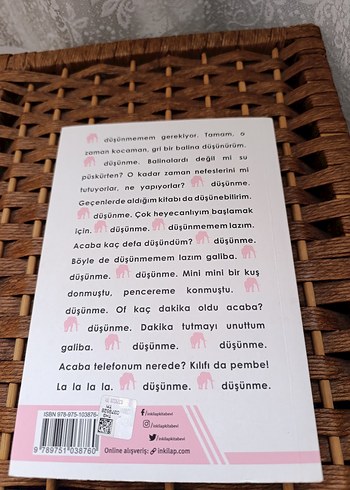 düşünmemem gerekiyor. Tamam, o
zaman kocaman, gri bir balina düşünürüm.
düşünme. Balinalardı değil mi su
püskürten? O kadar zaman nefeslerini mi
tutuyorlar, ne yapıyorlar? düşünme.
Geçenlerde aldığım kitabı da düşünebilirim.
düşünme. Çok heyecanlıyım başlamak
için. düşünme. düşünmemem lazım.
Acaba kaç defa düşündüm? düşünme.
Böyle de düşünmemem lazım galiba.
düşünme. düşünme. Mini mini bir kuş
donmuştu, pencereme konmuştu.
düşünme. Of kaç dakika oldu acaba?
düşünme. Dakika tutmayı unuttum
galiba. düşünme. düşünme.
Acaba telefonum nerede? Kılıfı da pembe!
La la la la. düşünme. düşünme.
ISBN 978-975-10-3876-
9 789751 038760
/inkilapkitabevi
/inkilapkitabevi
/inkilapkitabevi
Online alışveriş: inkilap.com